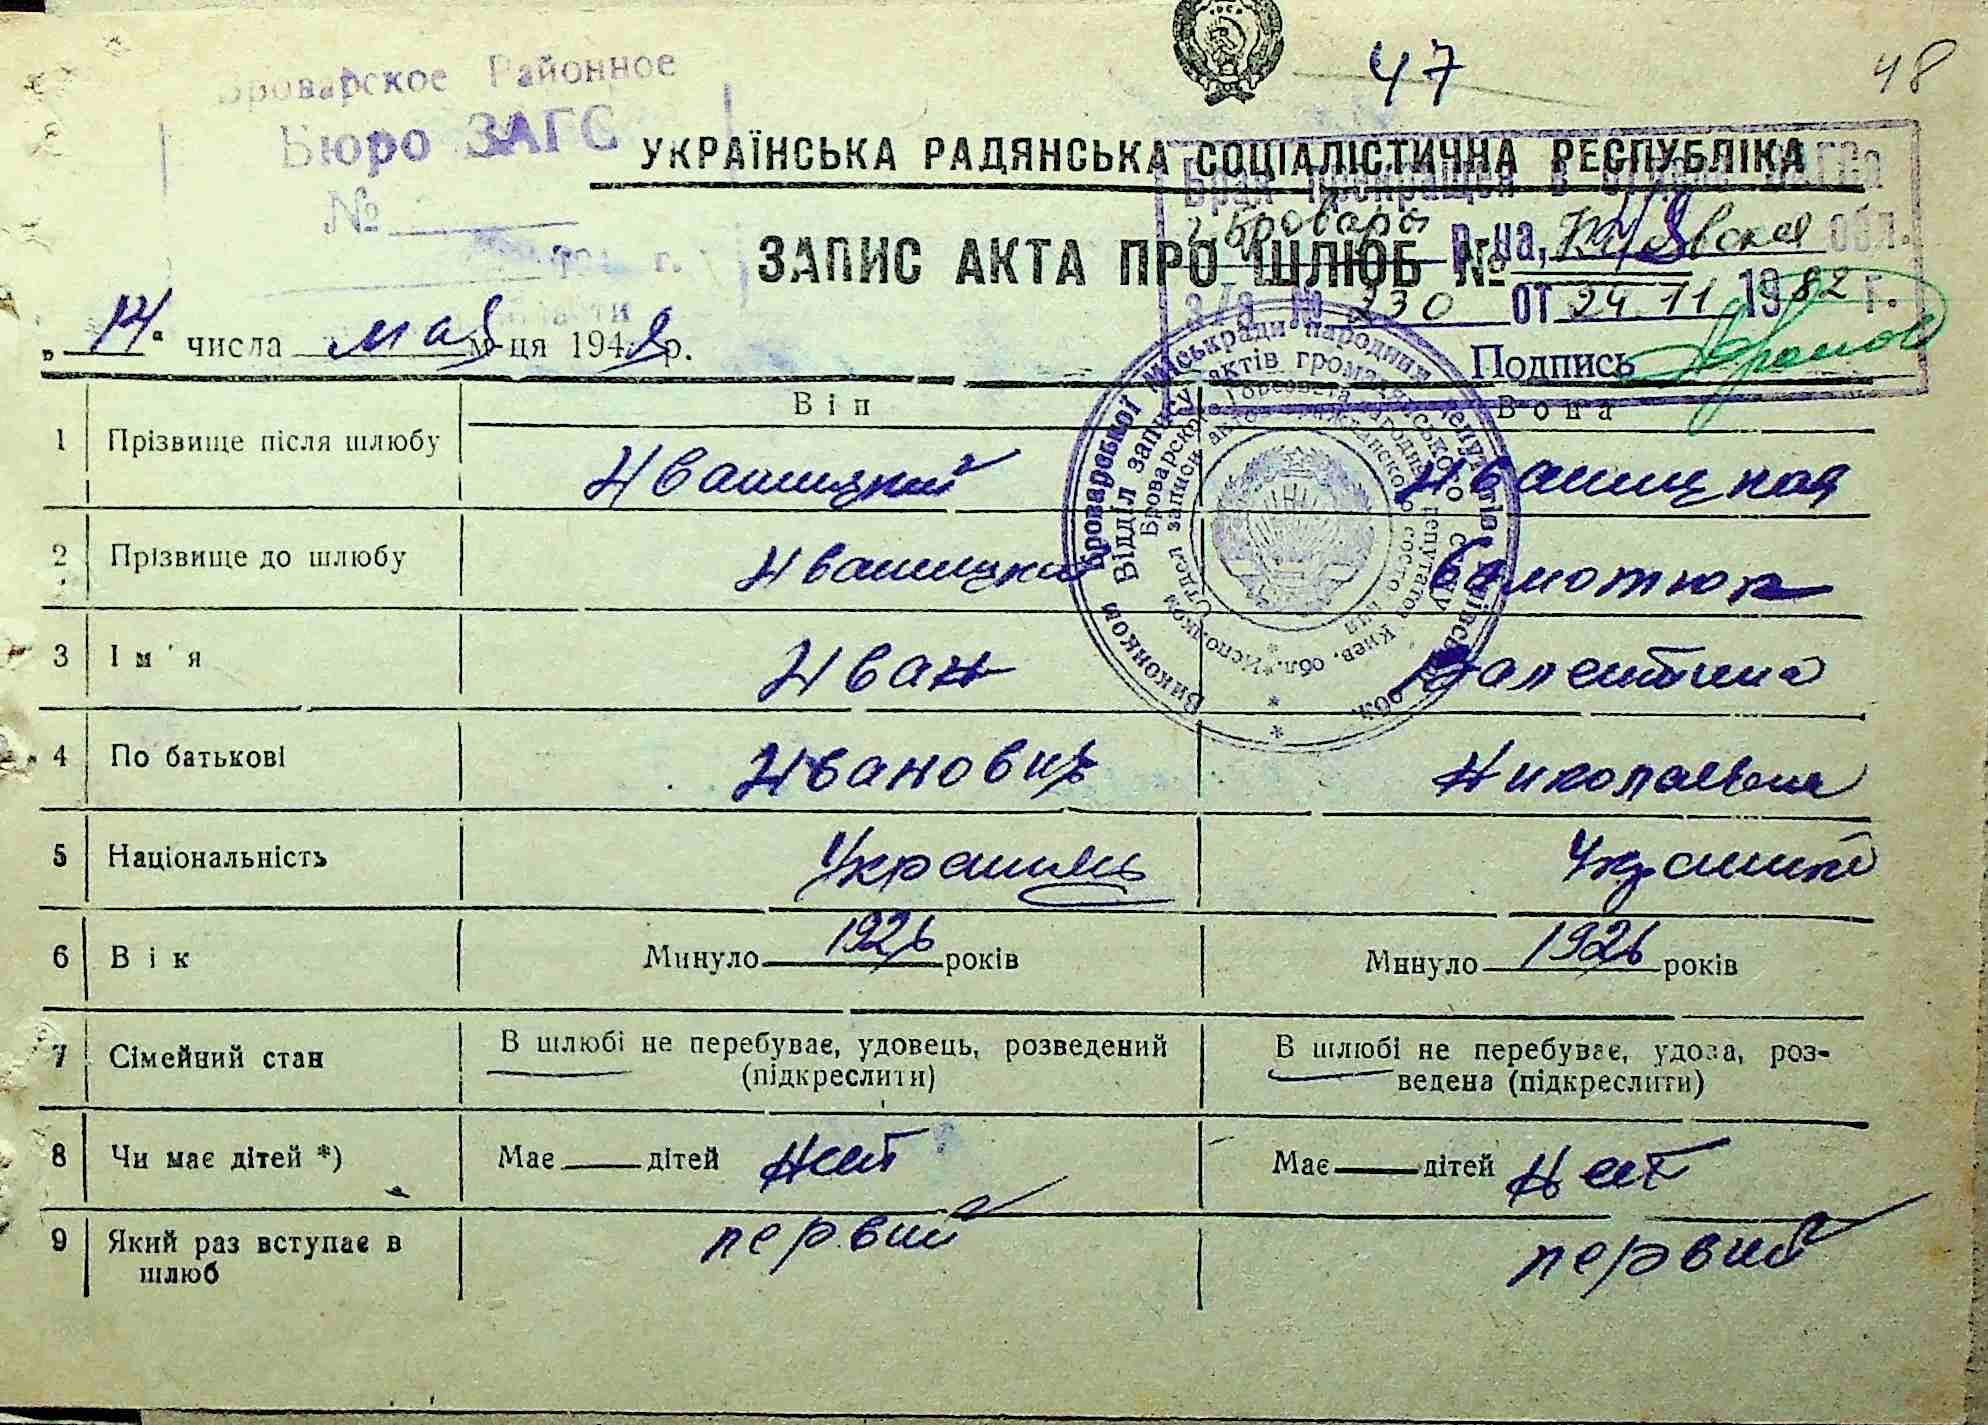 47
48
Броварское Районное
Бюро ЗАГС
№
УКРАЇНСЬКА РАДЯНСЬКА СОЦІАЛІСТИЧНА РЕСПУБЛІКА
Брак прекращен в отделе ЗАГСа
г. Бровары р-на, Киевская обл.
ЗАПИС АКТА ПРО ШЛЮБ № 48
з/а № 230 от 24.11 1982 г.
Подпись
„14“ числа мая м-ця 194 р.
Він Вона
1 Прізвище після шлюбу Ивашицкий Ивашицкая
2 Прізвище до шлюбу Ивашицкий
3 Ім'я Иван Валентина
4 По батькові Иванович Николаевна
5 Національність Украинец Украинка
6 Вік Минуло 1926 років Минуло 1926 років
7 Сімейний стан В шлюбі не перебуває, удовець, розведений (підкреслити) В шлюбі не перебуває, удова, роз-
ведена (підкреслити)
8 Чи має дітей *) Має дітей нет Має дітей нет
9 Який раз вступає в шлюб первий первий
Виконком Броварської міськради народних депутатів Київської обл.
Відділ запису актів громадянського стану